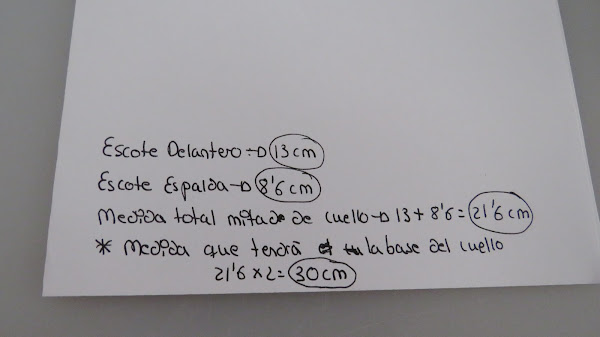 Escote Delantero → 13 cm
Escote Espalda → 8'6 cm
Medida total mitad de cuello → 13 + 8'6 = 21'6 cm
* Medida que tendrá la base del cuello
21'6 x 2 = 30 cm